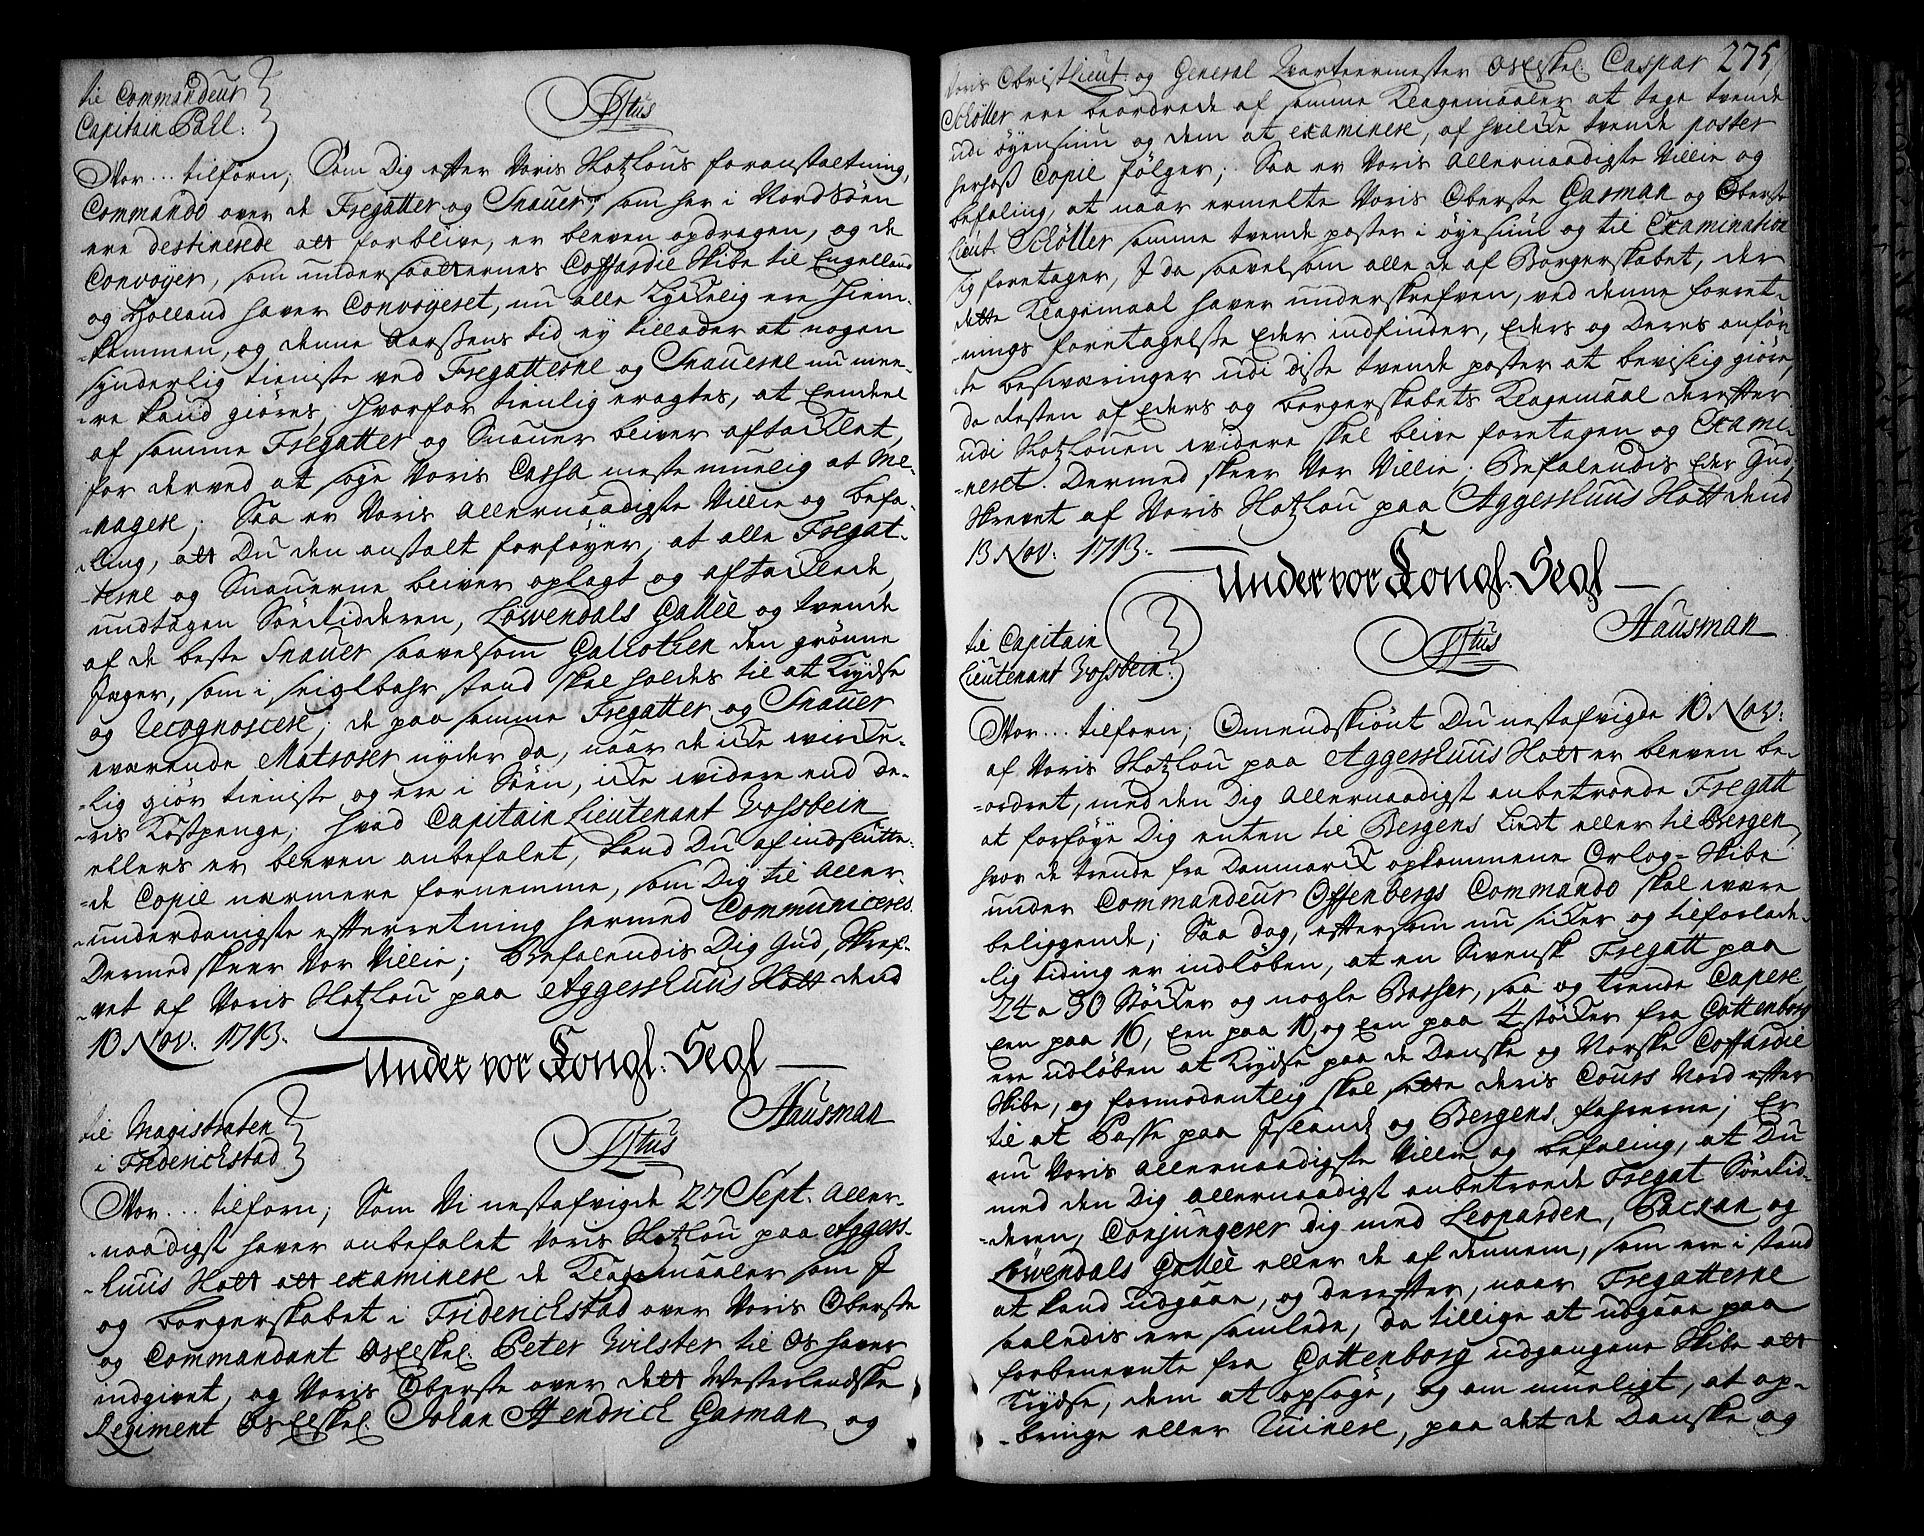 til Commandeur
Capitain Pahl:
Ttus
Vor... tilforn; Som Dig efter Voris Slotzlous foranstaltning,
Commando over de Fregatter og Snauer, som her i Nord Søen
ere destinerede att forblive, er bleven opdragen, og de
Convoyer, som undersaatternes Coffardie Skibe til Engelland
og Holland haver Convoyeret, nu alle Lyckelig ere Hiem-
-kommen, og denne Aarsens tid ey tillader at nogen
synderlig tieniste ved Fregatterne og Snauerne nu mee-
-re kand giøres, hvorfor tienlig eragtes, at Eendeel
af samme Fregatter og Snauer bliver aftacklet,
for derved at søge Voris Cassa meste muelig at Me-
-nagere; Saa er Voris Allernaadigste Villie og befa-
-ling, att Du den anstalt forføyer, at alle Fregat-
-terne og Snauerne bliver oplagt og aftacklede,
undtagen Søeridderen, Løwendals Gallee og tvende
af de beste Snauer saavelsom Galliothen den grønne
Jæger, som i seiglbahr stand skal holdes til at Krydse
og Recognoscere; de paa samme Fregatter og Snauer
værende Matroser nyder da, naar de icke wircke-
-lig giør tieniste og ere i Søen, icke widere end de-
-ris Kostpenge; hvad Capitain Lieutenant Vossbein
ellers er bleven anbefalet, kand Du af indslutte-
-de Copie nærmere fornemme, som Dig til Aller-
-underdanigste efterretning hermed Communiceres.
Dermed skeer Vor Villie; Befalendis Dig Gud, Skref-
-vet af Voris Slotzlou paa Aggershuus Slott dend
10 Nov: 1713.
Under vor Kongl: Segl
Hausman
til Magistraten
i Friderichstad
Ttus
Vor... tilforn; Som Vi nestafvigde 27 Sept. Aller-
-naadigst haver anbefalet Voris Slotzlou paa Aggers-
-huus Slott att examinere de Klagemaaler som I
og borgerskabet i Friderichstad over Voris Oberste
og Commandant Os Elskel. Peter Wilster til Os haver
indgivet, og Voris Oberste over dett Westerlendske
Regiment Os Elskel. Johan Hendrich Garman og
275
Voris ObristLieut. og General Qvarteermester Os Elskel. Caspar
Schøller ere beordrede af samme Klagemaaler at tage tvende
udi øyensiun og dem at examinere, af hvilcke tvende poster
herhoß Copie følger; Saa er Voris Allernaadigste Villie og
befaling, at naar ermelte Voris Oberste Garman og Oberst-
Lieut. Schøller samme tvende poster i øyesiun og til Examination
sig foretager, I da saavelsom alle de af Borgerskabet, der
dette Klagemaal haver underskrefven, ved denne forret-
-nings foretagelse Eder indfinder, Eders og Deres anfør-
-te besværinger udi disse tvende poster at bevislig giøre,
da resten af Eders og borgerskabets Klagemaal derefter
udi Slotzlouen widere skal blive foretagen og Exami-
-neret. Dermed skeer Vor Villie. Befalendis Eder Gud,
Skrevet af Voris Slotzlou paa Aggershuus Slott dend
13 Nov: 1713.
Under vor Kongl: Segl
Hausman
til Capitain
Lieutenant Vossbein:
Ttus
Vor... tilforn; Omendskiønt Du nestafvigde 10. Nov:
af Voris Slotzlou paa Aggershuus Slott er bleven be-
-ordret, med den Dig Allernaadigst anbetroede Fregatt
at forføye Dig enten til Bergens Lindt eller til Bergen,
hvor de trende fra Danmarck opkommene Orlog-Skibe
under Commandeur Ossenbergs Commando skal være
beliggende; Saa dog, eftersom nu sicker og tilforlade-
-lig tiding er indløben, at en Swensk Fregatt paa
24 a 30 Stöcker og nogle Basser, saa og trende Capere
Een paa 16, Een paa 10, og Een paa 4 støcker fra Gottenborg
ere udløben at Krydse paa de Danske og Norske Coffardie
Skibe, og formodentlig skal sætte deris Cours Nord efter
til at Passe paa Islands og Bergens farerne; Er
nu Voris Allernaadigste Villie og befaling, at Du
med den Dig Allernaadigst anbetroede Fregat Søerid-
-deren, Conjungerer dig med Leoparden, Packan og
Løwendals Gallee eller de af dennem, som ere i stand
at kand udgaae, og derefter, naar Fregatterne
saaledis ere samlede, da tillige at udgaae paa
forbenevnte fra Gottenborg udgangene Skibe att
Krydse, dem at opsøge, og om mueligt, at op-
-bringe eller Ruinere, paa det de Danske og